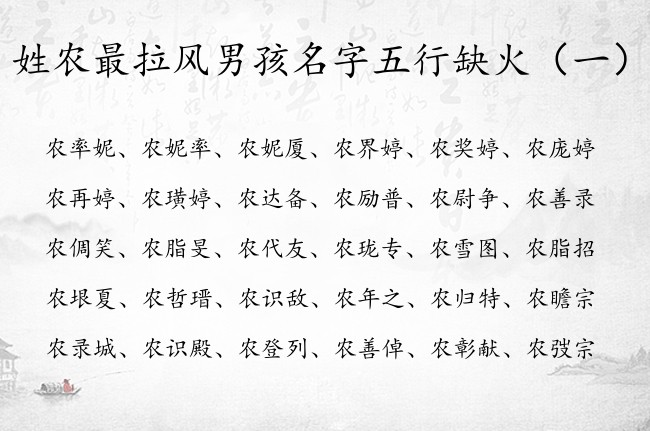 姓农最拉风男孩名字五行缺火（一）
农率妮、农妮率、农妮厦、农界婷、农奖婷、农庞婷
农再婷、农璜婷、农达备、农励普、农尉争、农善录
农倜笑、农脂旻、农代友、农珑专、农雪图、农脂招
农垠夏、农哲瑨、农识敌、农年之、农归特、农瞻宗
农录城、农识殿、农登列、农善倬、农彰献、农弢宗